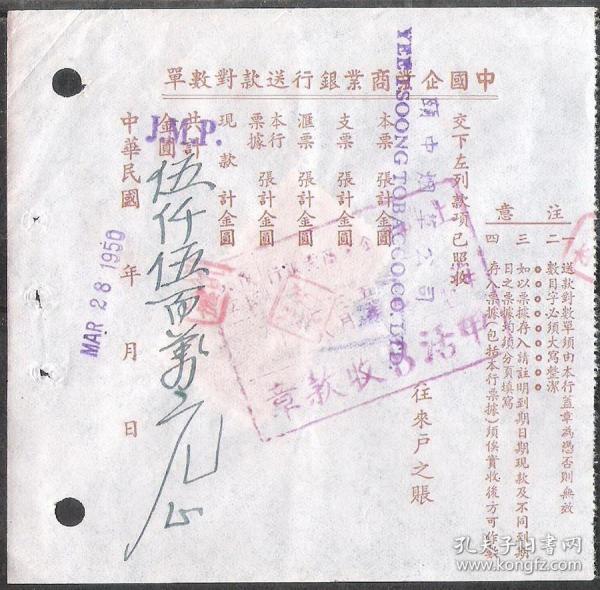 中國企業商業銀行送款對數單
注意
一 送款對數單須由本行蓋章為憑否則無效
二 數目字必須大寫整潔
三 如以票據存入請註明到期日期現款及不同到期日之票據均須分頁填寫
四 存入票據(包括本行票據)須俟實收後方可作數
交下左列款項已照收
頤中烟草公司
YEE TSOONG TOBACCO CO. LTD.
往來戶之賬
本票 張計金圓
支票 張計金圓
滙票 張計金圓
本行票據 張計金圓
現款 計金圓
共計金圓
J.M.P.
伍仟伍百萬元正
中華民國 年 月 日
MAR 28 1950
收款章
孔夫子旧书网
kongfz.com